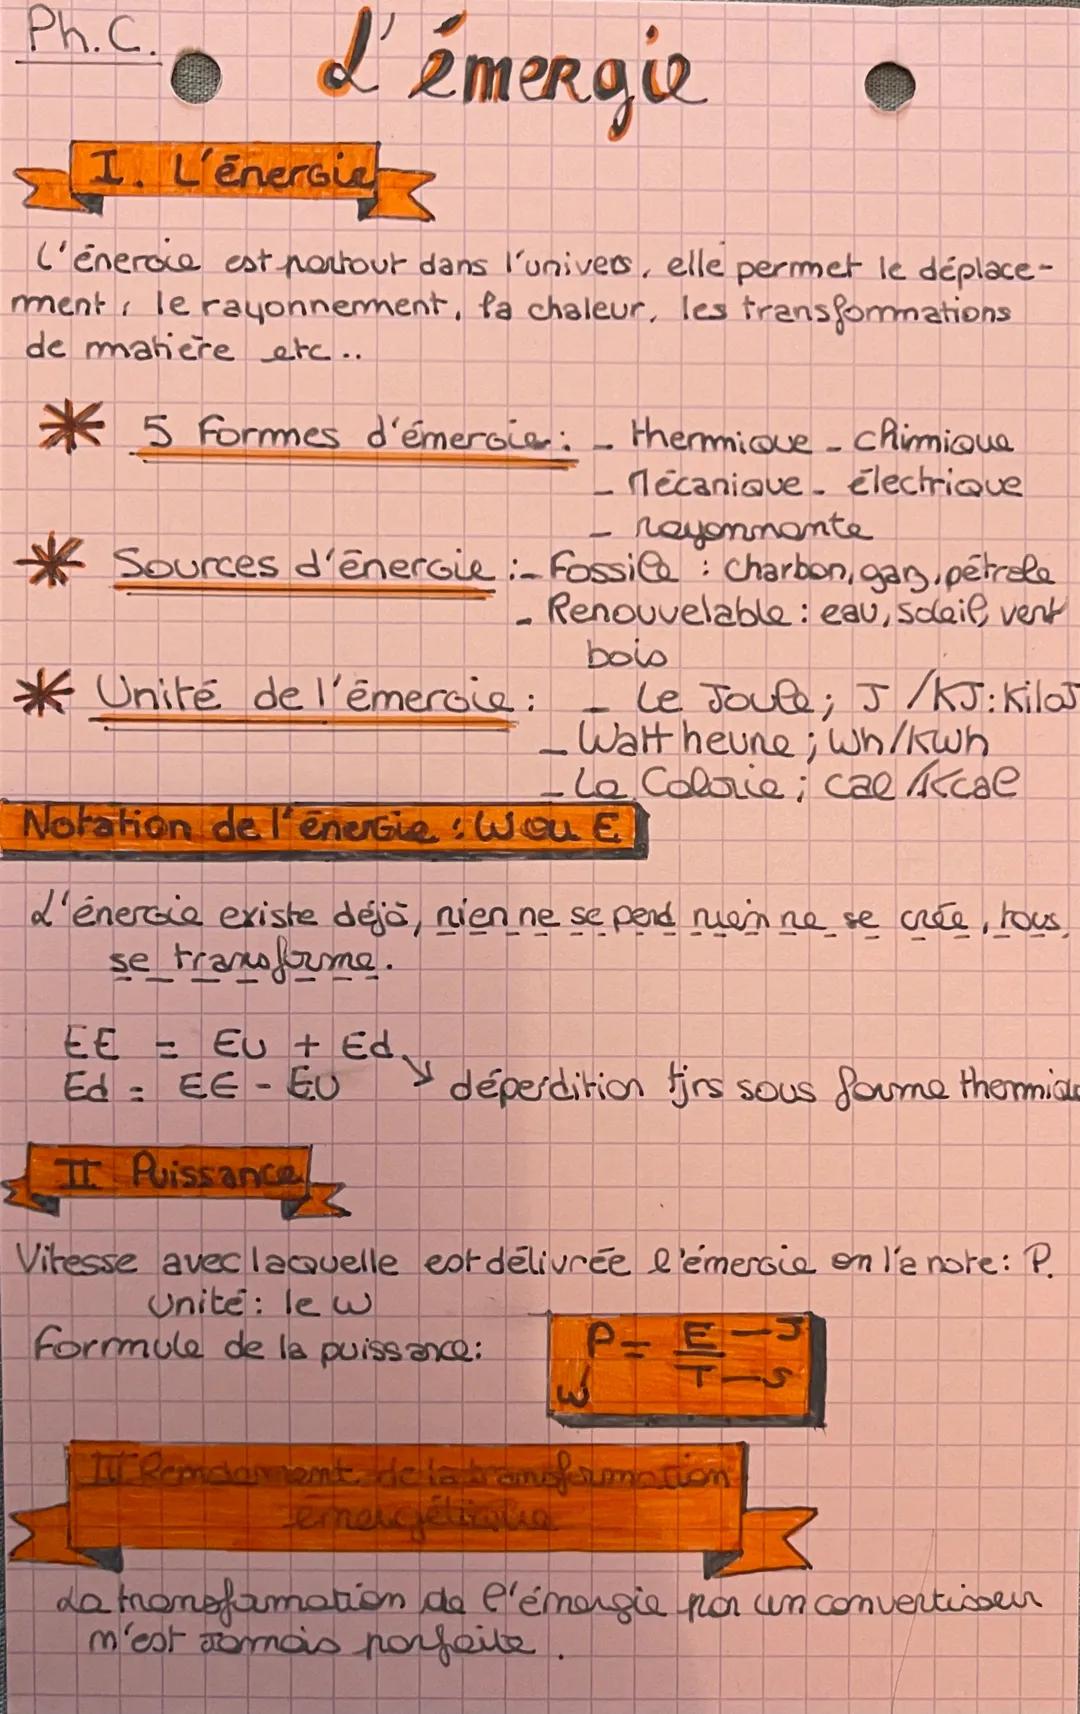 Ph.C.
L'énergie
I. L'énergie
L'énergie est partout dans l'univers, elle permet le déplace-
ment, le rayonnement, la chaleur, les transformations
de matière etc..
* 5 Formes d'énergie : - thermique - chimique
- Mécanique - électrique
- rayonnante
* Sources d'énergie : - Fossile : charbon, gaz, pétrole
- Renouvelable : eau, soleil, vent
bois
* Unité de l'énergie : - Le Joule ; J /KJ : KiloJ
- Watt heure ; Wh/KWh
- La Calorie ; cal /Kcal
Notation de l'énergie : W ou E
L'énergie existe déjà, rien ne se perd rien ne se crée, tous
se transforme.
EE = EU + Ed
Ed = EE - EU ↘ déperdition tjrs sous forme thermique
II Puissance
Vitesse avec laquelle est délivrée l'énergie on l'a note : P.
Unité : le W
Formule de la puissance :
P = E — J
T — S
W
III Rendament de la transformation
énergétique
La transformation de l'énergie par un convertisseur
n'est jamais parfaite.